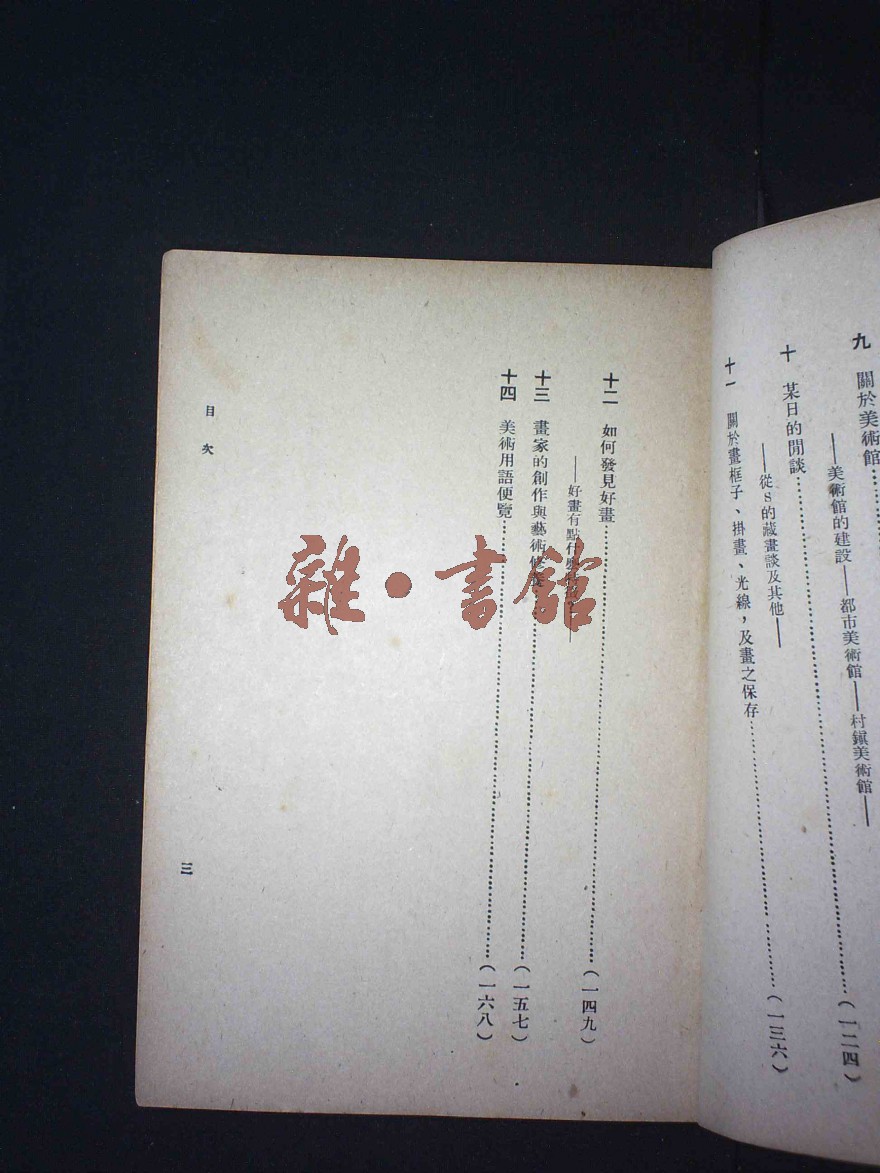 九 關於美術館……
——美術館的建設——都市美術館——村鎮美術館——
十 某日的閒談……(一二四)
——從S的藏畫談及其他——
十一 關於畫框子、掛畫、光線，及畫之保存……(一三六)
十二 如何發見好畫……(一四九)
——好畫有點什麼——
十三 畫家的創作與藝術修養……(一五七)
十四 美術用語便覽……(一六八)
目次
三
雜·書館